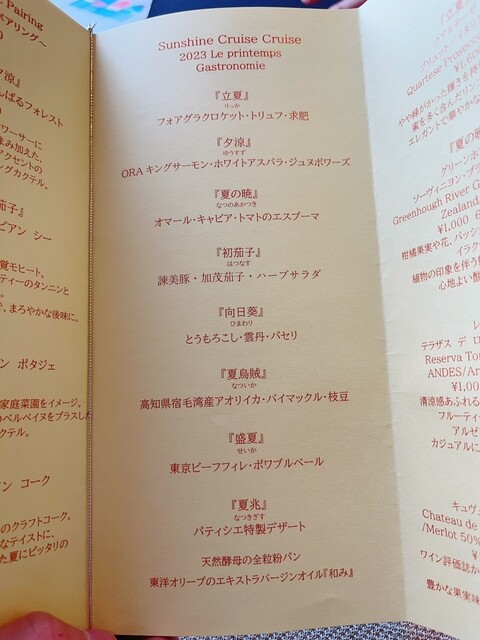 Pairing
アリング～
夕涼』
んばるフォレスト
ワーサーに
まみ加えた、
アクセントの
ングカクテル。
茄子』
ビアン シー
覚モヒート。
ティーのタンニンと
で、まろやかな後味に。
ン ポタジェ
家庭菜園をイメージ。
のベルベイヌをプラスした
クテル。
ン コーク
のクラフトコーク。
なテイストに、
た夏にピッタリの
Sunshine Cruise Cruise
2023 Le printemps
Gastronomie
『立夏』
りっか
フォアグラクロケット・トリュフ・求肥
『夕涼』
ゆうすず
ORA キングサーモン・ホワイトアスパラ・ジュヌポワーズ
『夏の暁』
なつのあかつき
オマール・キャビア・トマトのエスプーマ
『初茄子』
はつなす
諫美豚・加茂茄子・ハーブサラダ
『向日葵』
ひまわり
とうもろこし・雲丹・パセリ
『夏烏賊』
なついか
高知県宿毛湾産アオリイカ・バイマックル・枝豆
『盛夏』
せいか
東京ビーフフィレ・ポワブルベール
『夏兆』
なつきざす
パティシエ特製デザート
天然酵母の全粒粉パン
東洋オリーブのエキストラバージンオイル『和み』
『立夏
Quartese Prosecco
¥1,6
やや緑がかった輝きを持
素を多く含んだリン
エレガントで華やかな
『夏の暁
グリーンホ
ソーヴィニヨン・ブラ
Greenhough River G
Zealand
¥1,000 6
柑橘果実や花、パッシ
イラク
植物の印象を伴う
心地よい酸
テラザス デ ロ
Reserva To
ANDES/Ar
¥1,00
清涼感あふれる
フルーティ
アルゼ
カジュアルに
キュヴ
Chateau de
/Merlot 50%
ワイン評価誌か
豊かな果実味